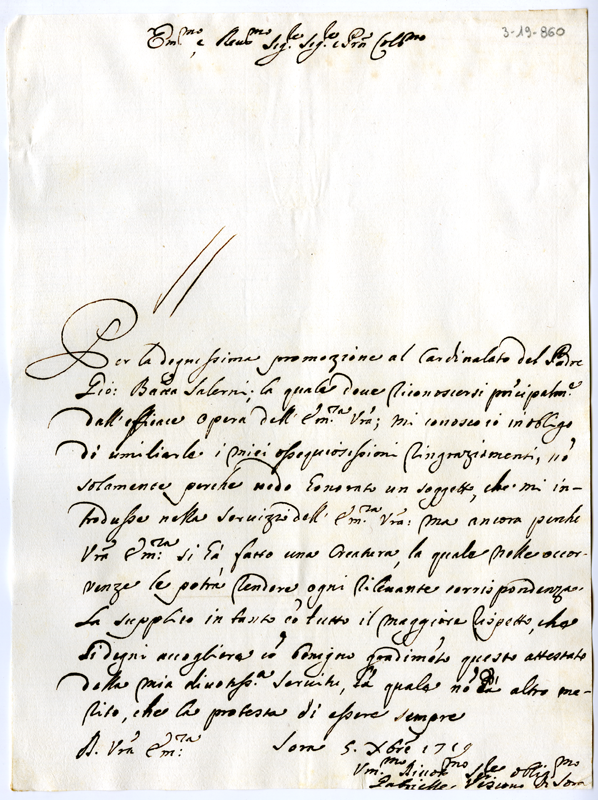 Em.mo e Reu.mo Sig.re Sig.re e Prõn Col.mo
3-19-860
Per la degnissima promozione al Cardinalato del Padre
Gio: Batta Salerni, la quale deue riconoscersi prĩcipalm.e
dall'efficace opera dell'Em.za Vrã; mi conosco in obligo
di umiliarle i miei ossequiosissimi ringraziamenti, nõ
solamente perche uedo honorato un soggetto, che mi in-
trodusse nella seruizi dell'Em.za Vrã: ma ancora perche
Vrã Em.za si hà fatto una Creatura, la quale nelle occor-
renze le potrà rendere ogni rileuante corrispondenza.
La supplico in tanto cõ tutto il maggiore rispetto, che
si degni accogliere cõ benigno gradimẽto questo attestato
della mia diuotiss.a seruitù, la quale nõ hà altro me-
rito, che la protesta di essere sempre
D. Vrã Em.za Sora 5. Xbre 1719
Vm.mo Diuot.mo Se.re oblig.mo
Gabrielle Vescouo di Sora